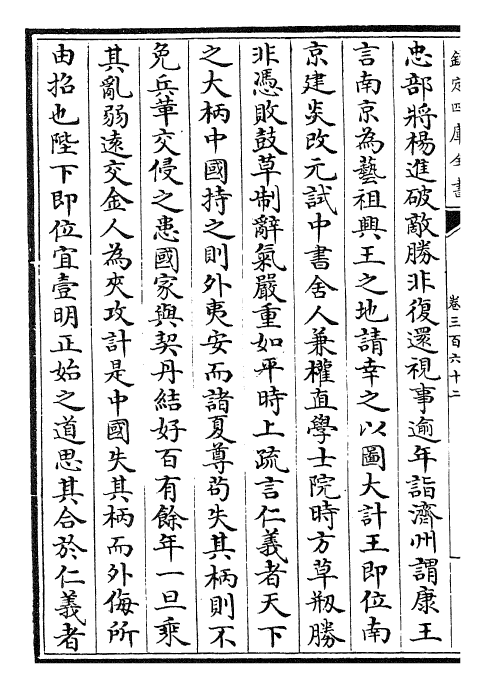 欽定四庫全書
卷三百六十二
忠部將楊進破敵勝非復還視事逾年詣濟州謂康王
言南京為藝祖興王之地請幸之以圖大計王即位南
京建炎改元試中書舍人兼權直學士院時方草剏勝
非憑敗鼓草制辭氣嚴重如平時上疏言仁義者天下
之大柄中國持之則外夷安而諸夏尊苟失其柄則不
免兵革交侵之患國家與契丹結好百有餘年一旦乘
其亂弱遠交金人為夾攻計是中國失其柄而外侮所
由招也陛下即位宜壹明正始之道思其合於仁義者